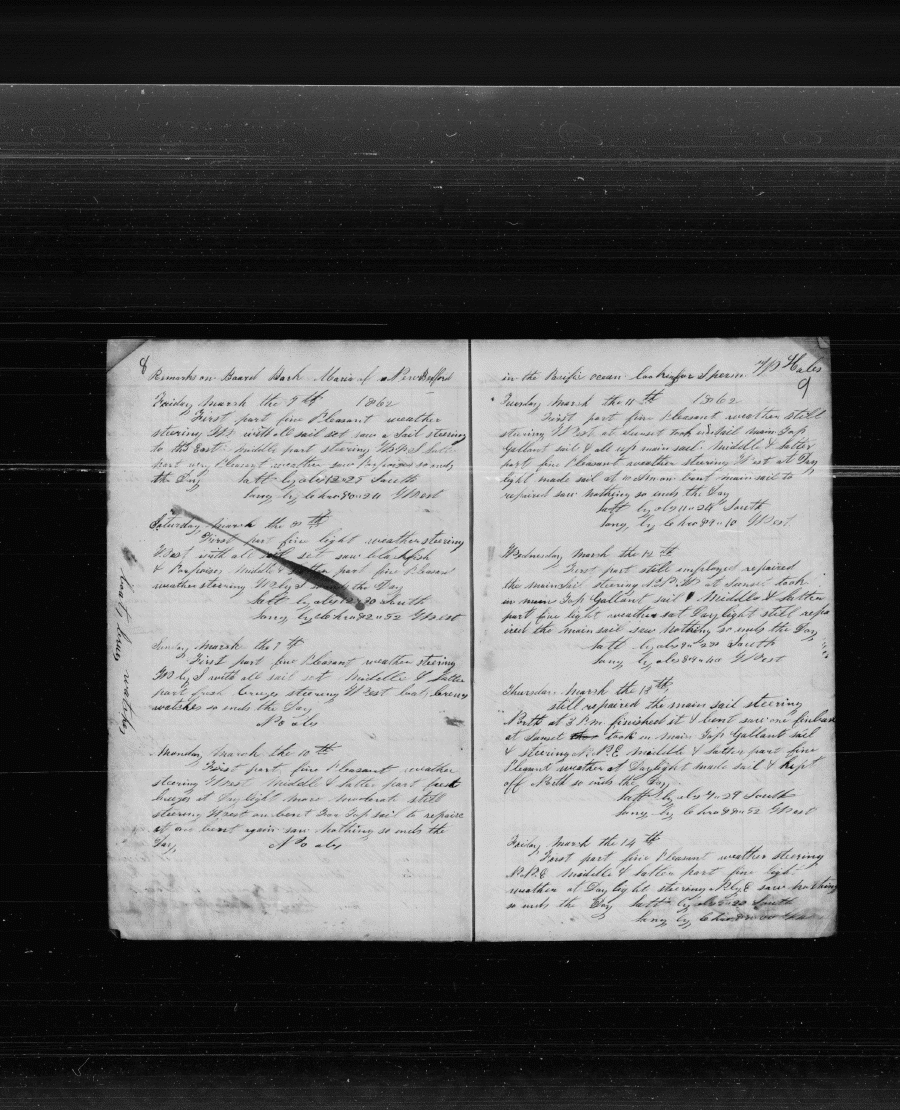 8
Remarks on Board Bark Maria of New Bedford
Friday March the 7th 1862
First part fine Pleasant weather
steering with all sail set saw a Sail steering
to the East middle part steering
part very Pleasant weather saw Porpoises so ends
the Day Latt by obs 12-25 South
Long by Chro 80 24 West
Saturday March the 8th
First part fine light weather steering
West with all sail set saw blackfish
& Porpoises Middle & latter part fine Pleasant
weather steering W by S the Day
Latt by obs 30 South
Long by Chro 82 52 West
Sunday March the 9th
First part fine Pleasant weather steering
W by S with all sail set Middle & latter
part fresh breeze steering West boats crews
watches so ends the Day
No obs
Monday March the 10th
First part fine Pleasant weather
steering West Middle & latter part fresh
breeze at Daylight more moderate still
steering West un bent Fore Top sail to repaire
at one bent again saw Nothing so ends the
Day No obs
boats crews watches
in the Pacific ocean looking for Sperm Whales
9
Tuesday March the 11th 1862
First part fine Pleasant weather still
steering West at sunset took in sail main Top
Gallant sail & all up main sail Middle & latter
part fine Pleasant weather steering West at Day
light made sail at bent main sail to
repaired saw nothing so ends the Day
Latt by obs 11 24 South
Long by Chro 89 10 West
Wednesday March the 12th
First part still employed repaired
the mainsail steering at Sunset took
in main Top Gallant sail Middle & latter
part fine light weather at Day light still repa
ired the main sail saw Nothing so ends the Day
Latt by obs 9 20 South
Long by obs 89 40 West
Thursday March the 13th
still repaired the main sail steering
North at 3 P.m. finished it & bent saw one finback
at Sunset took in Main Top Gallant sail
& steering N.N.E Middle & latter part fine
Pleasant weather at Daylight made sail & kept
off North so ends the Day
Latt by obs 7 29 South
Long by Chro 89 52 West
Friday March the 14th
First part fine Pleasant weather steering
N.N.E Middle & latter part fine light
weather at Day light steering N by E saw Nothing
so ends the Day Latt by obs 5 20 South
Long by Chro